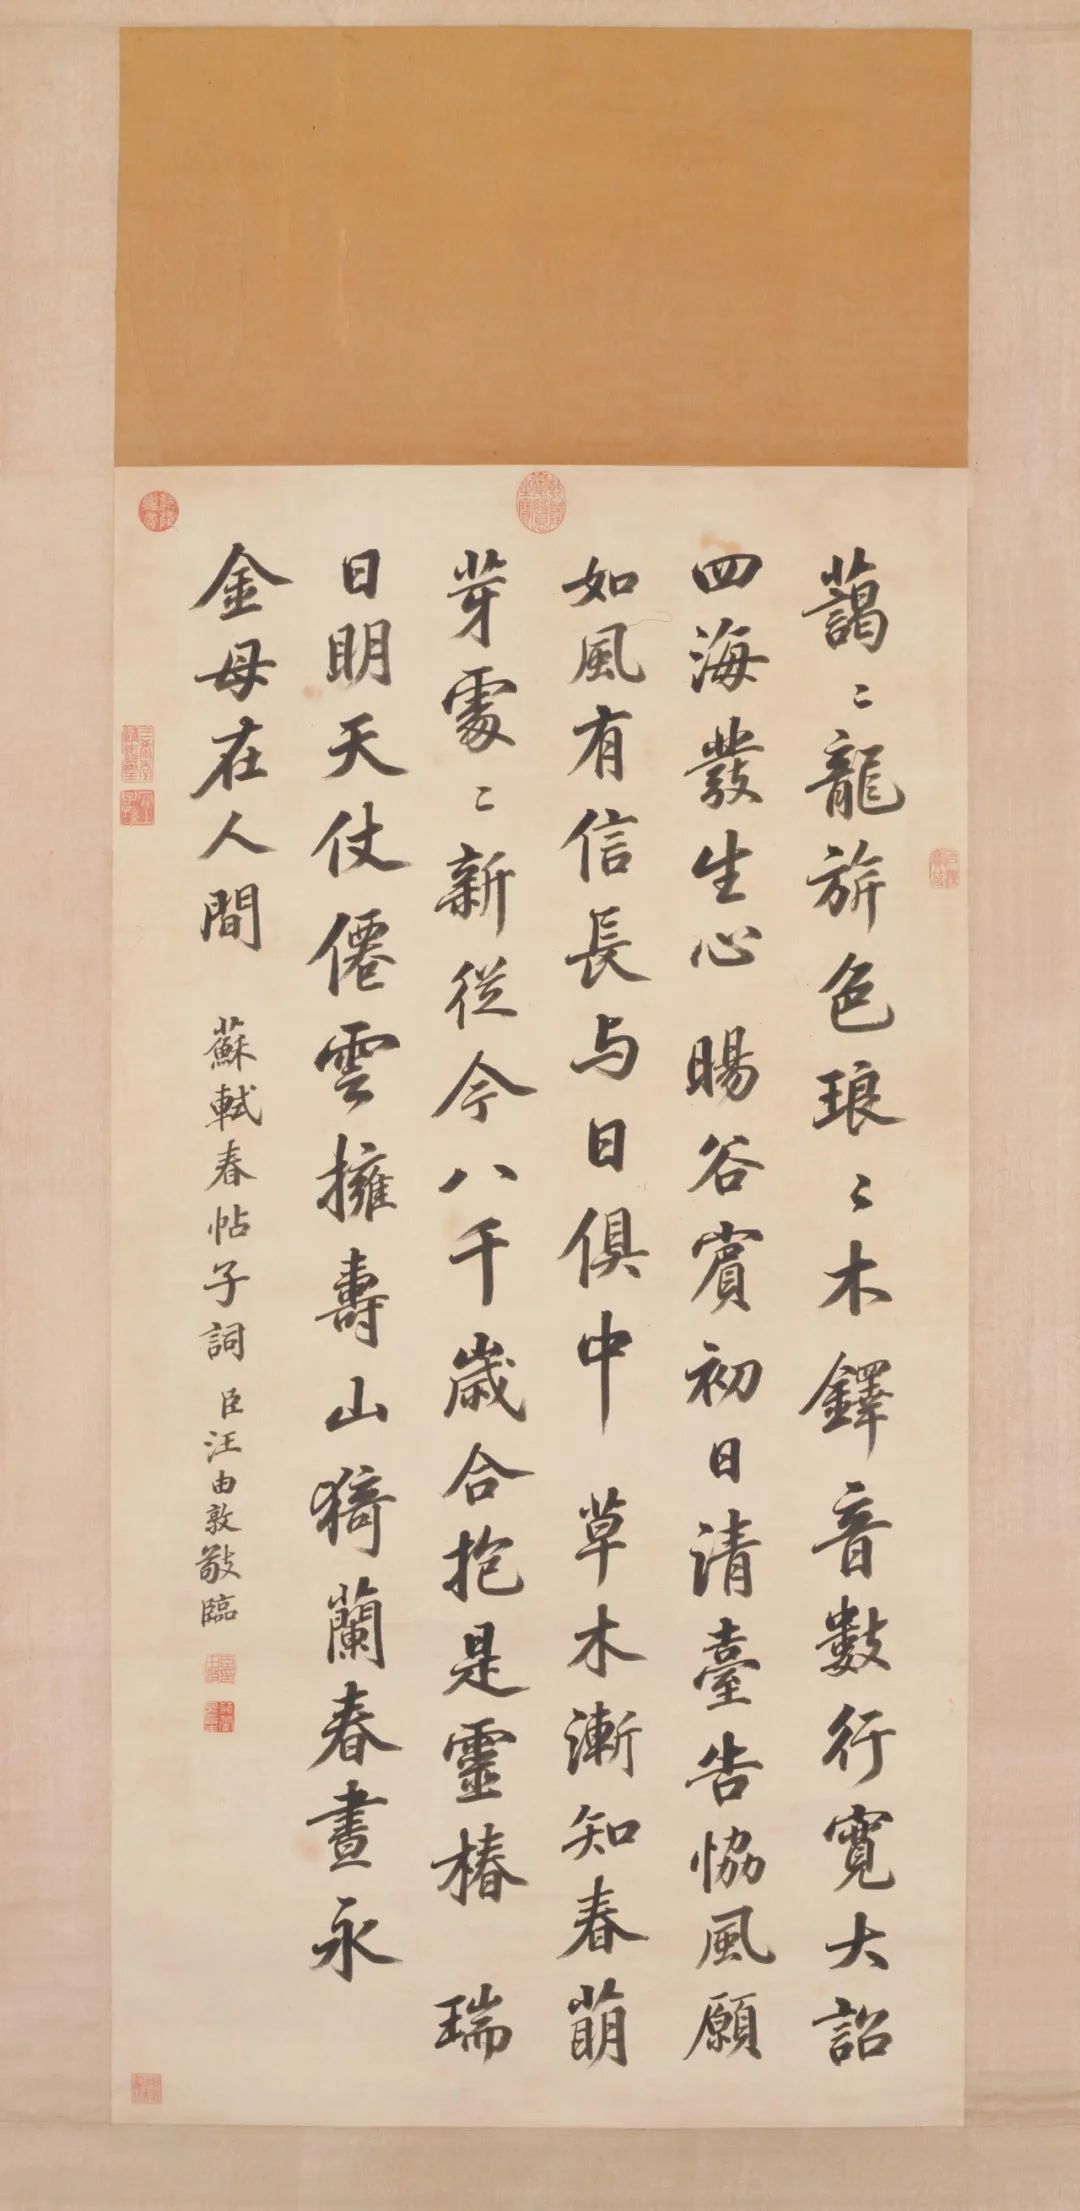 藹〻龍旂色琅〻木鐸音數行寬大詔
四海發生心 暘谷賓初日清臺告協風願
如風有信長与日俱中 草木漸知春萌
芽處〻新從今八千歲合抱是靈椿 瑞
日明天仗僊雲擁壽山猗蘭春晝永
金母在人間 蘇軾春帖子詞 臣汪由敦敬臨